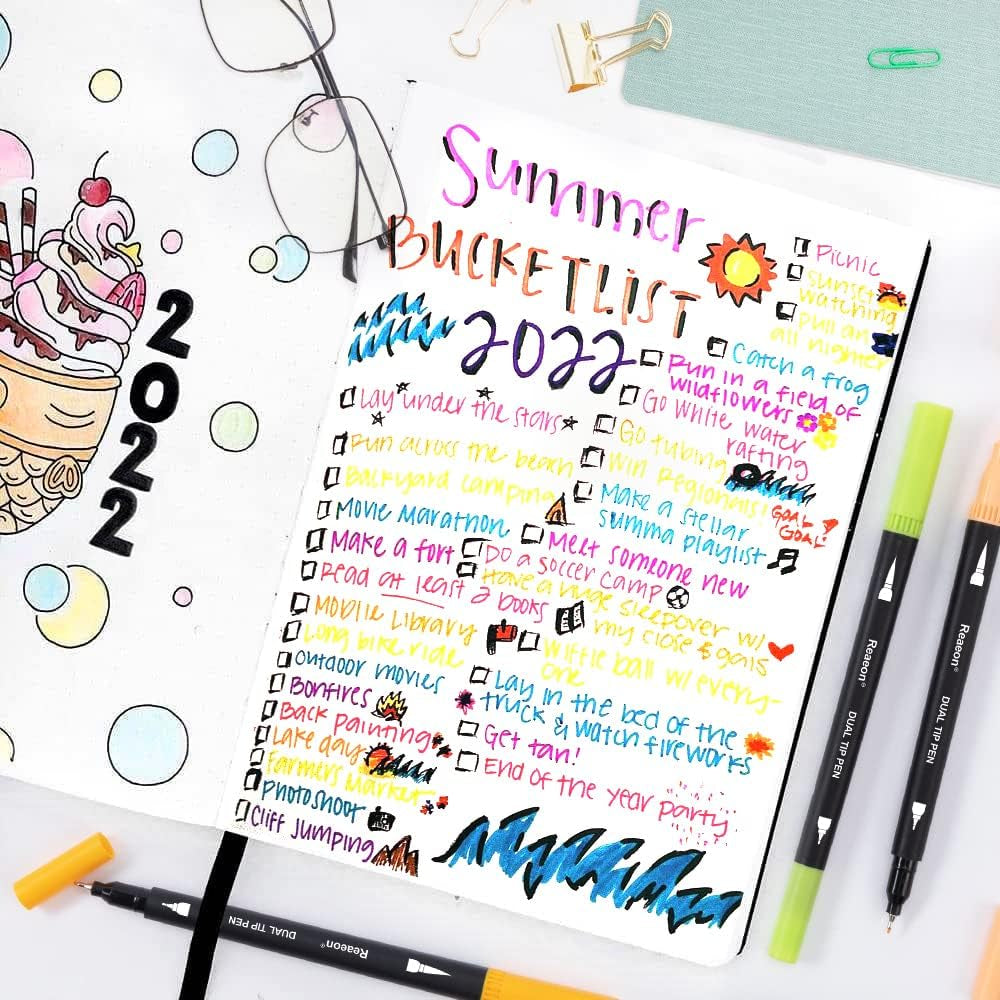 2022
Summer
BUCKETLIST
2022
Lay under the stars
Run across the beach
Backyard camping
Movie Marathon
Make a fort
Read at least 2 books
Mobile Library
Long bike ride
Outdoor movies
Bonfires
Back painting
Lake day
Farmers Market
Photoshoot
Cliff Jumping
Picnic
Sunset
watching
Pull an
all nighter
Catch a frog
Run in a field of
wildflowers
Go white water
rafting
Go tubing
Win Regionals!
GOAL!
GOAL!
Make a stellar
summa playlist
Meet someone new
Do a soccer camp
Have a huge sleepover w/
my close & gals
Wiffle ball w/ every-
one
Lay in the bed of the
truck & watch fireworks
Get tan!
End of the year party
Reaeon® DUAL TIP PEN
Reaeon® DUAL TIP PEN
Reaeon® DUAL TIP PEN